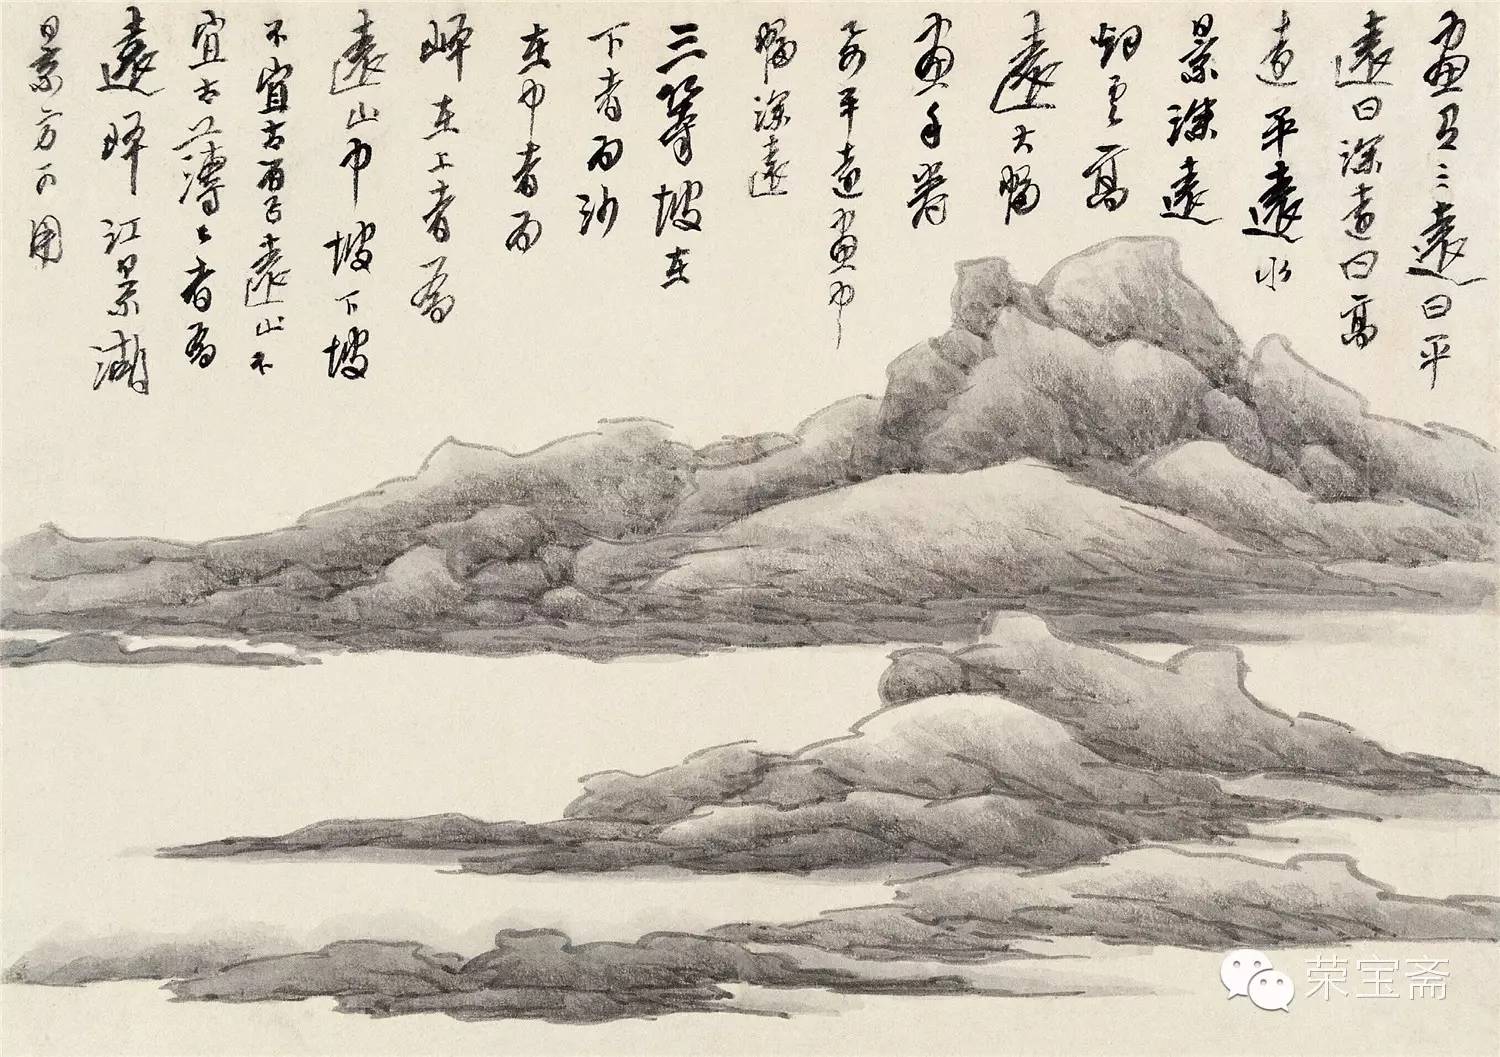 畫有三遠曰平
遠曰深遠曰高
遠平遠水
景深遠
烟雲高
遠大幅
畫手卷
多平遠畫中
幅深遠
三等坡在
下者為沙
在中者為
峰在上者為
遠山中坡下坡
不宜古而遠山不
宜古薄者為
遠峰江景湖
景方可用
荣宝斋